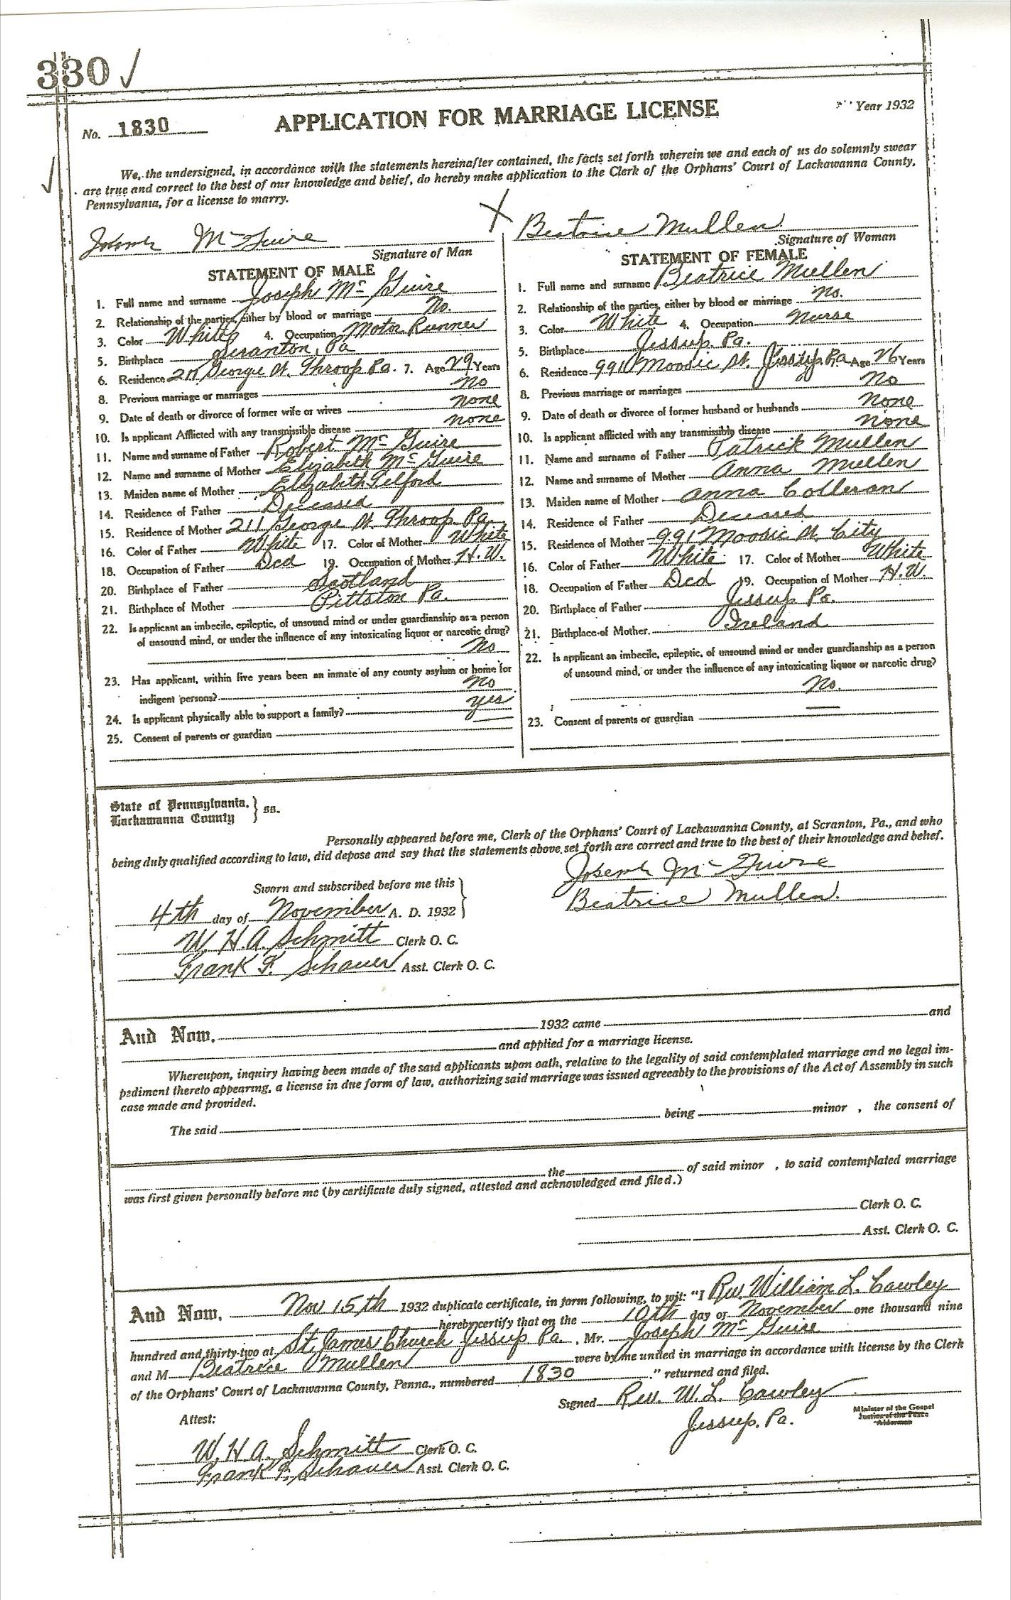 330 ✓
No. 1830 APPLICATION FOR MARRIAGE LICENSE Year 1932
We, the undersigned, in accordance with the statements hereinafter contained, the facts set forth wherein we and each of us do solemnly swear
are true and correct to the best of our knowledge and belief, do hereby make application to the Clerk of the Orphans' Court of Lackawanna County,
Pennsylvania, for a license to marry.
Joseph McGuire
Signature of Man
STATEMENT OF MALE
1. Full name and surname Joseph McGuire
2. Relationship of the parties, either by blood or marriage No.
3. Color White 4. Occupation Motor Runner
5. Birthplace Scranton, Pa
6. Residence 211 George St. Throop Pa. 7. Age 29 Years
8. Previous marriage or marriages No
9. Date of death or divorce of former wife or wives none
10. Is applicant Afflicted with any transmissible disease none
11. Name and surname of Father Robert McGuire
12. Name and surname of Mother Elizabeth McGuire
13. Maiden name of Mother Elizabeth Telford
14. Residence of Father Deceased
15. Residence of Mother 211 George St. Throop Pa.
16. Color of Father White 17. Color of Mother White
18. Occupation of Father Dcd 19. Occupation of Mother H.W.
20. Birthplace of Father Scotland
21. Birthplace of Mother Pittston Pa.
22. Is applicant an imbecile, epileptic, of unsound mind or under guardianship as a person
of unsound mind, or under the influence of any intoxicating liquor or narcotic drug?
No
23. Has applicant, within five years been an inmate of any county asylum or home for
indigent persons? No
24. Is applicant physically able to support a family? yes
25. Consent of parents or guardian
X Beatrice Mullen
Signature of Woman
STATEMENT OF FEMALE
1. Full name and surname Beatrice Mullen
2. Relationship of the parties, either by blood or marriage No.
3. Color White 4. Occupation Nurse
5. Birthplace Jessup Pa.
6. Residence 991 Moosic St. Jessup Pa 7. Age 26 Years
8. Previous marriage or marriages No
9. Date of death or divorce of former husband or husbands None
10. Is applicant afflicted with any transmissible disease none
11. Name and surname of Father Patrick Mullen
12. Name and surname of Mother Anna Mullen
13. Maiden name of Mother Anna Colleran
14. Residence of Father Deceased
15. Residence of Mother 991 Moosic St City
16. Color of Father White 17. Color of Mother White
18. Occupation of Father Dcd 19. Occupation of Mother H.W.
20. Birthplace of Father Jessup Pa.
21. Birthplace of Mother. Ireland
22. Is applicant an imbecile, epileptic, of unsound mind or under guardianship as a person
of unsound mind, or under the influence of any intoxicating liquor or narcotic drug?
No.
23. Consent of parents or guardian
State of Pennsylvania, } ss.
Lackawanna County
Personally appeared before me, Clerk of the Orphans' Court of Lackawanna County, at Scranton, Pa., and who
being duly qualified according to law, did depose and say that the statements above set forth are correct and true to the best of their knowledge and belief.
Joseph McGuire
Beatrice Mullen.
Sworn and subscribed before me this
4th day of November A. D. 1932
W. H. A. Schmitt Clerk O. C.
Frank F. Schauer Asst. Clerk O. C.
And Now, 1932 came and
and applied for a marriage license.
Whereupon, inquiry having been made of the said applicants upon oath, relative to the legality of said contemplated marriage and no legal im-
pediment thereto appearing, a license in due form of law, authorizing said marriage was issued agreeably to the provisions of the Act of Assembly in such
case made and provided.
The said being minor , the consent of
the of said minor , to said contemplated marriage
was first given personally before me (by certificate duly signed, attested and acknowledged and filed.)
Clerk O. C.
Asst. Clerk O. C.
And Now, Nov 15th 1932 duplicate certificate, in form following, to wit: "I Rev William L. Cawley
hereby certify that on the 10th day of November one thousand nine
hundred and thirty-two at St. James Church Jessup Pa , Mr. Joseph McGuire
and M Beatrice Mullen were by me united in marriage in accordance with license by the Clerk
of the Orphans' Court of Lackawanna County, Penna., numbered 1830 " returned and filed.
Signed Rev. W. L. Cawley
Jessup, Pa.
Minister of the Gospel
Justice of the Peace
Alderman
Attest:
W. H. A. Schmitt Clerk O. C.
Frank F. Schauer Asst. Clerk O. C.